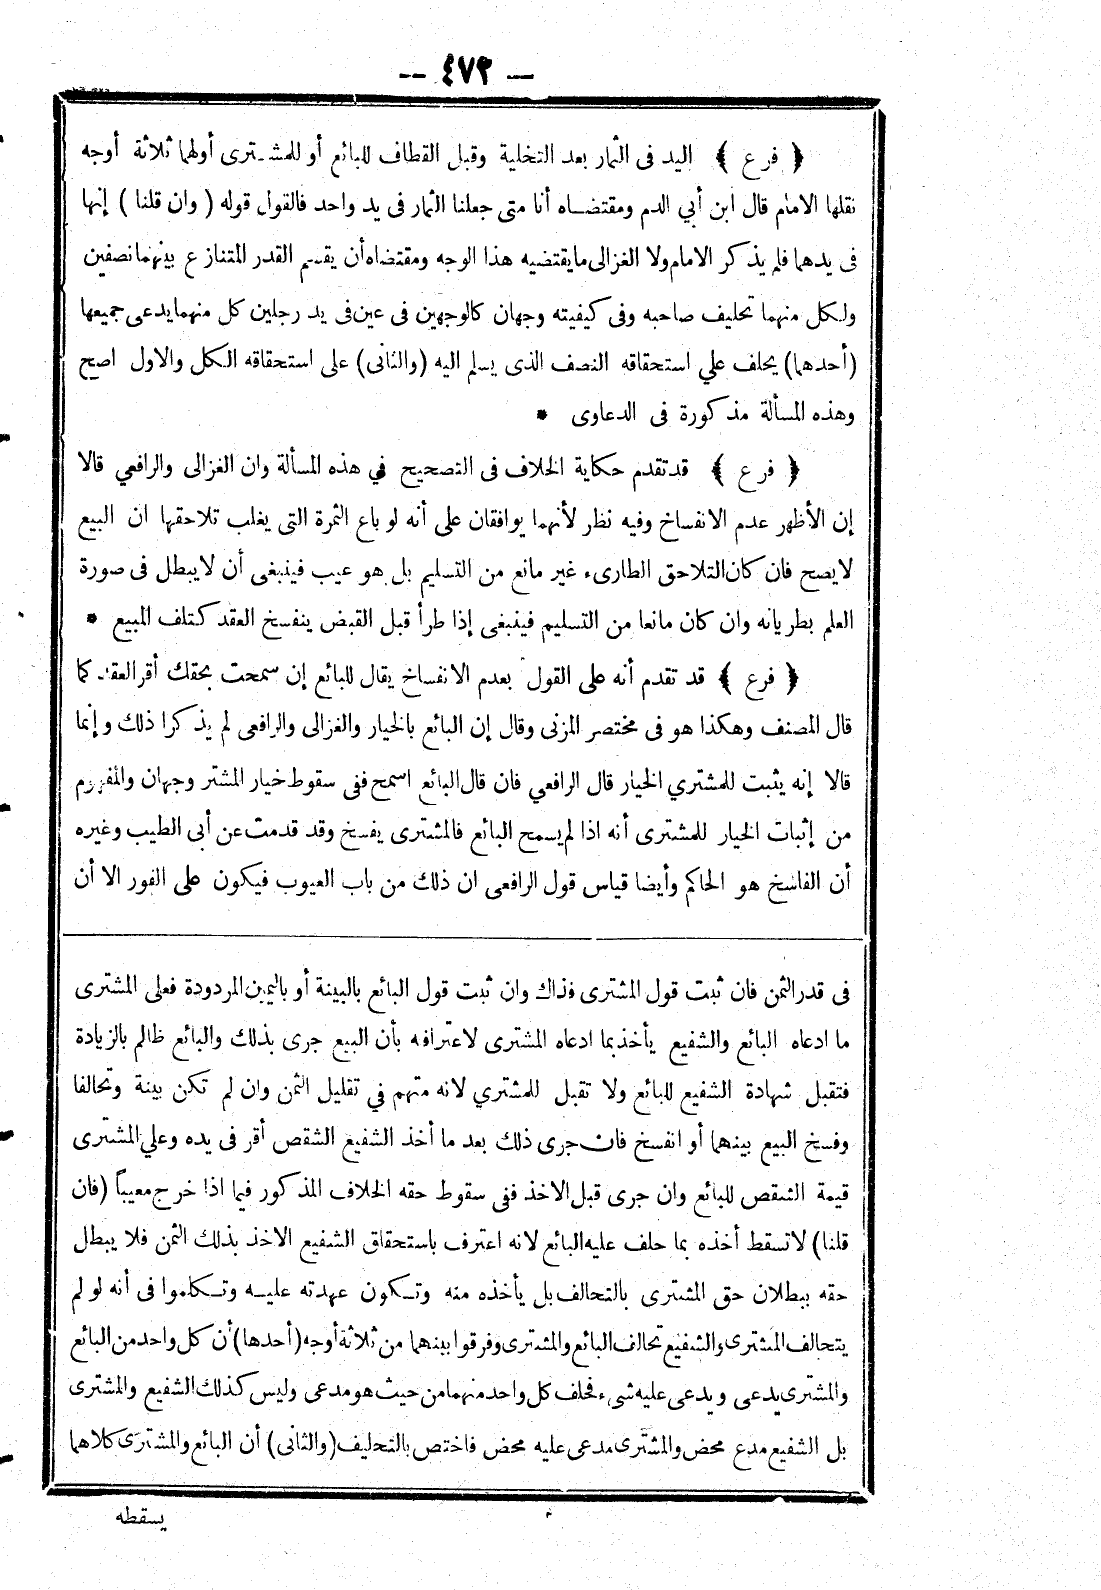 — ٤٧٣ —
﴿ فرع ﴾ اليد فى الثمار بعد التخلية وقبل القطاف للبائع أو للمشترى أولهما ثلاثة أوجه
نقلها الامام قال ابن أبي الدم ومقتضاه أنا متى جعلنا الثمار فى يد واحد فالقول قوله ( وان قلنا ) إنها
فى يدهما فلم يذكر الامام ولا الغزالى مايقتضيه هذا الوجه ومقتضاه أن يقسم القدر المتنازع بينهما نصفين
ولكل منهما تحليف صاحبه وفى كيفيته وجهان كالوجهين فى عين فى يد رجلين كل منهما يدعى جميعها
(أحدهما) يحلف علي استحقاقه النصف الذى يسلم اليه (والثانى) على استحقاقه الكل والاول اصح
وهذه المسألة مذكورة فى الدعاوى *
﴿ فرع ﴾ قد تقدم حكاية الخلاف فى التصحيح في هذه المسألة وان الغزالى والرافعي قالا
إن الأظهر عدم الانفساخ وفيه نظر لأنهما يوافقان على أنه لو باع الثمرة التى يغلب تلاحقها ان البيع
لايصح فان كان التلاحق الطارىء غير مانع من التسليم بل هو عيب فينبغى أن لايبطل فى صورة
العلم بطريانه وان كان مانعا من التسليم فينبغى إذا طرأ قبل القبض ينفسخ العقد كتلف المبيع *
﴿ فرع ﴾ قد تقدم أنه على القول بعدم الانفساخ يقال للبائع إن سمحت بحقك أقر العقد كما
قال المصنف وهكذا هو فى مختصر المزنى وقال إن البائع بالخيار والغزالى والرافعى لم يذكرا ذلك وإنما
قالا إنه يثبت للمشتري الخيار قال الرافعي فان قال البائع اسمح ففى سقوط خيار المشتر وجهان والمفهوم
من إثبات الخيار للمشترى أنه اذا لم يسمح البائع فالمشترى يفسخ وقد قدمت عن أبى الطيب وغيره
أن الفاسخ هو الحاكم وأيضا قياس قول الرافعى ان ذلك من باب العيوب فيكون على الفور الا أن
فى قدر الثمن فان ثبت قول المشترى فذاك وان ثبت قول البائع بالبينة أو باليمين المردودة فعلى المشترى
ما ادعاه البائع والشفيع يأخذ بما ادعاه المشترى لاعترافه بأن البيع جرى بذلك والبائع ظالم بالزيادة
فتقبل شهادة الشفيع للبائع ولا تقبل للمشتري لانه متهم في تقليل الثمن وان لم تكن بينة وتحالفا
وفسخ البيع بينهما أو انفسخ فان جرى ذلك بعد ما أخذ الشفيع الشقص أقر فى يده وعلي المشترى
قيمة الشقص للبائع وان جرى قبل الاخذ ففى سقوط حقه الخلاف المذكور فيما اذا خرج معيباً (فان
قلنا) لا تسقط أخذه بما حلف عليه البائع لانه اعترف باستحقاق الشفيع الاخذ بذلك الثمن فلا يبطل
حقه ببطلان حق المشترى بالتحالف بل يأخذه منه وتكون عهدته عليه وتكلموا فى أنه لو لم
يتحالف المشترى والشفيع تحالف البائع والمشترى وفرقوا بينهما من ثلاثة أوجه (أحدها) أن كل واحد من البائع
والمشترى يدعى ويدعى عليه شىء فحلف كل واحد منهما من حيث هو مدعى وليس كذلك الشفيع والمشترى
بل الشفيع مدع محض والمشترى مدعى عليه محض فاختص بالتحليف (والثانى) أن البائع والمشترى كلاهما
يسقطه